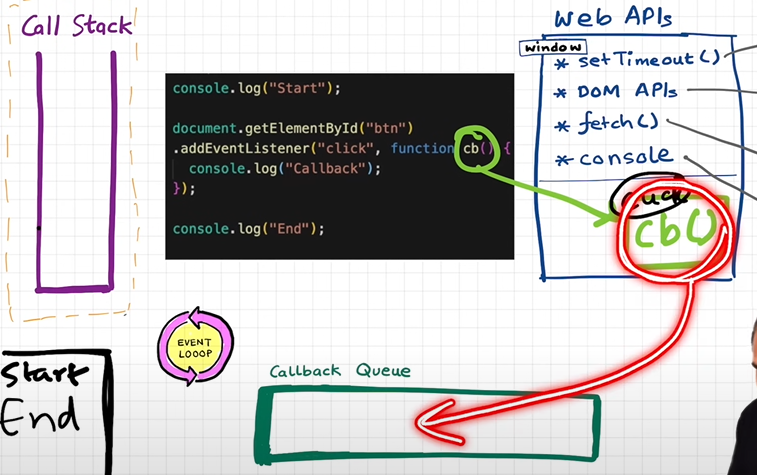 Call Stack
console.log("Start");
document.getElementById("btn")
.addEventListener("click", function cb() {
console.log("Callback");
});
console.log("End");
Web APIs
window
* setTimeout()
* DOM APIs
* fetch()
* console
click
cb()
EVENT
LOOOP
Callback Queue
Start
End